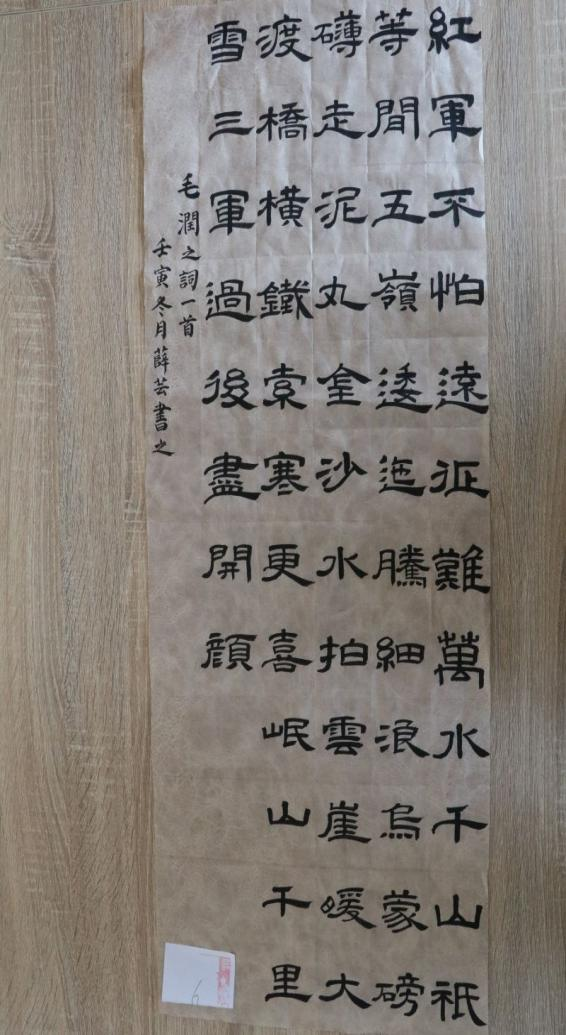 紅軍不怕遠征難萬水千山祇
等間五嶺逶迤騰細浪烏蒙磅
礴走泥丸金沙水拍雲崖暖大
渡橋橫鐵索寒更喜岷山千里
雪三軍過後盡開顏
毛潤之詞一首
壬寅冬月薛芸書之
6